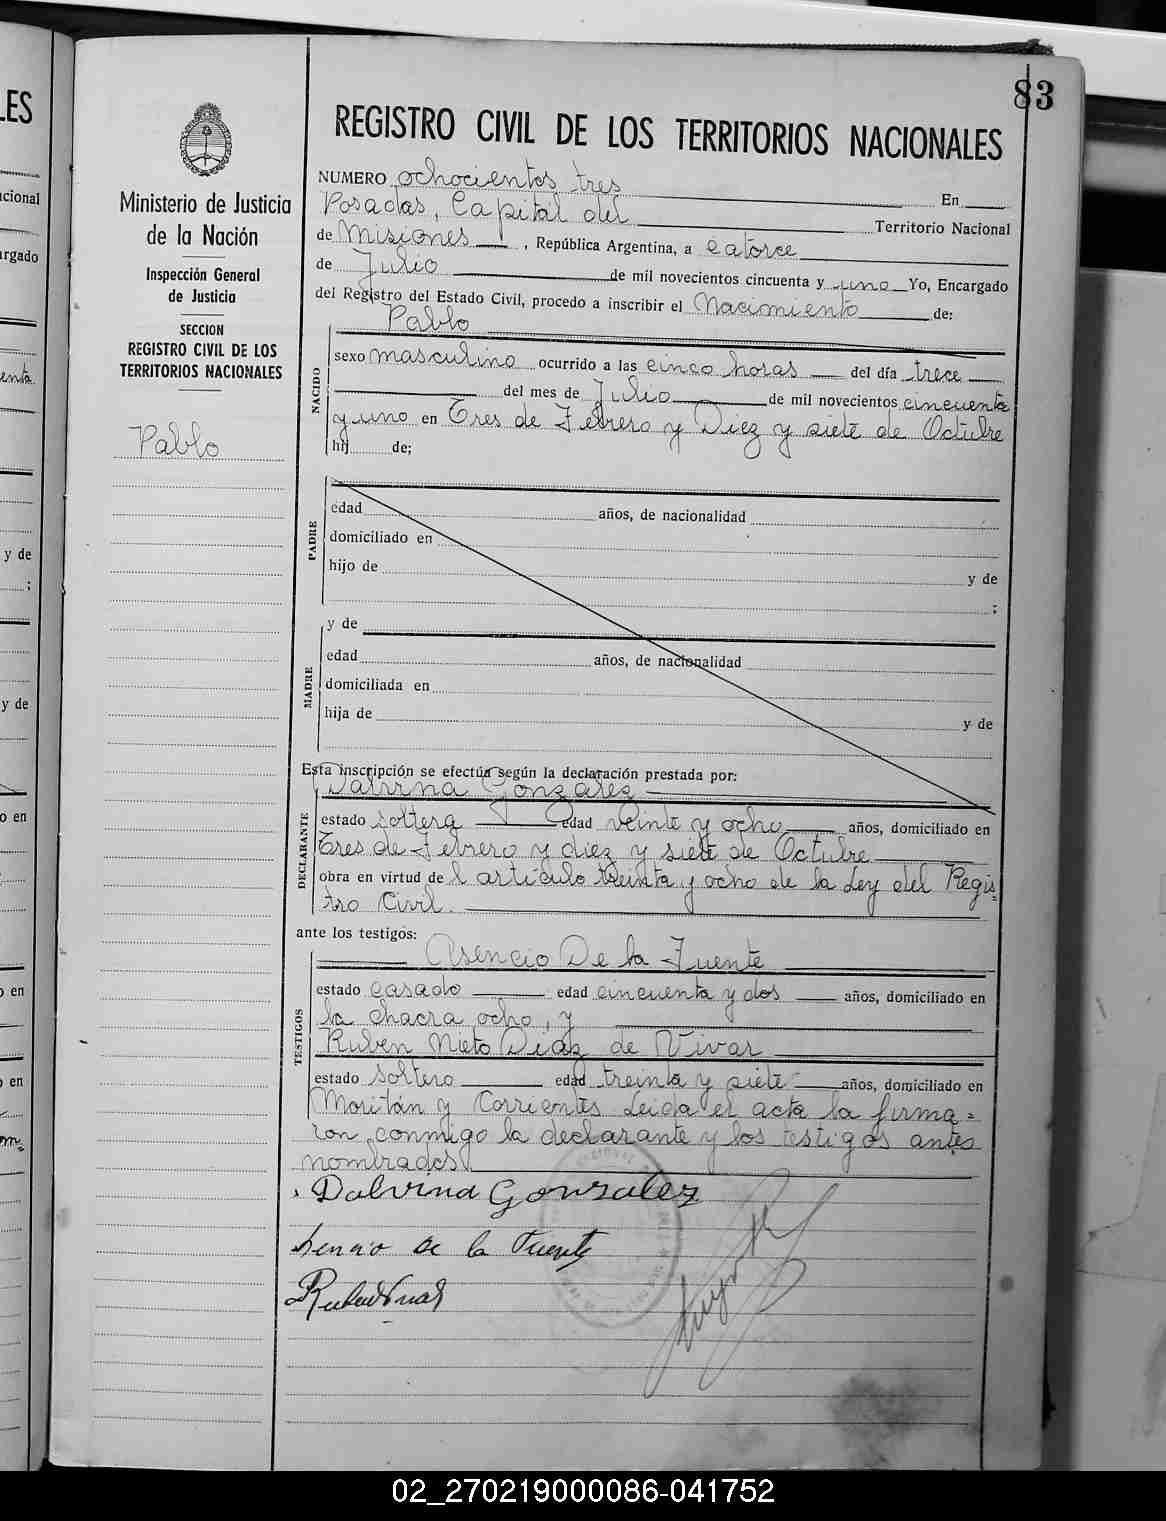 83
REGISTRO CIVIL DE LOS TERRITORIOS NACIONALES
Ministerio de Justicia
de la Nación
Inspección General
de Justicia
SECCION
REGISTRO CIVIL DE LOS
TERRITORIOS NACIONALES
Pablo
NUMERO ochocientos tres En
Posadas, Capital del Territorio Nacional
de Misiones, República Argentina, a catorce
de Julio de mil novecientos cincuenta y uno Yo, Encargado
del Registro del Estado Civil, procedo a inscribir el Nacimiento de:
Pablo
NACIDO
sexo masculino ocurrido a las cinco horas del día trece
del mes de Julio de mil novecientos cincuenta
y uno en Tres de Febrero y Diez y siete de Octubre
hij de;
PADRE
edad años, de nacionalidad
domiciliado en
hijo de y de
;
MADRE
y de
edad años, de nacionalidad
domiciliada en
hija de y de
Esta inscripción se efectúa según la declaración prestada por:
Dalvina González
DECLARANTE
estado soltera edad veinte y ocho años, domiciliado en
Tres de Febrero y diez y siete de Octubre
obra en virtud de l artículo treinta y ocho de la Ley del Regis
tro Civil.
ante los testigos:
Asencio De la Fuente
TESTIGOS
estado casado edad cincuenta y dos años, domiciliado en
la chacra ocho, y
Ruben Nieto Diaz de Vivar
estado soltero edad treinta y siete años, domiciliado en
Moritán y Corrientes Leida el acta la firma=
ron conmigo la declarante y los testigos antes
nombrados
Dalvina Gonzalez
de la Fuente
LES
cional
argado
enta
y de
;
y de
o en
o en
o en
02_270219000086-041752